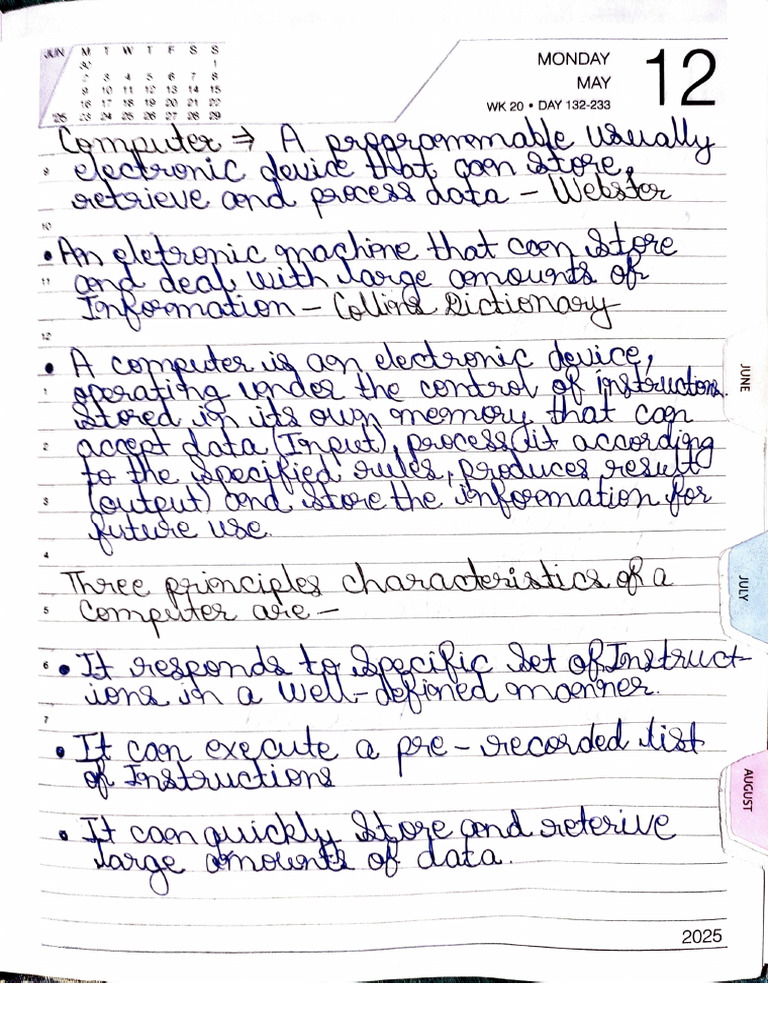 JUN M T W T F S S
30 1
2 3 4 5 6 7 8
9 10 11 12 13 14 15
16 17 18 19 20 21 22
'25 23 24 25 26 27 28 29
MONDAY
MAY
12
WK 20 • DAY 132-233
Computer ⇒ A programmable usually
9 electronic device that can store,
retrieve and process data – Webster
10
• An eletronic machine that can store
11 and deal with large amounts of
Information – Collins Dictionary
12
• A computer is an electronic device,
1 operating under the control of instructions
stored in its own memory that can
2 accept data (Input), process it according
to the specified rules, produces result
3 (output) and store the information for
future use.
4
Three principles characteristics of a
5 Computer are –
6 • It responds to specific set of Instruct-
ions in a well-defined manner.
7
• It can execute a pre-recorded list
of Instructions
• It can quickly store and reterive
large amounts of data.
2025
JUNE
JULY
AUGUST